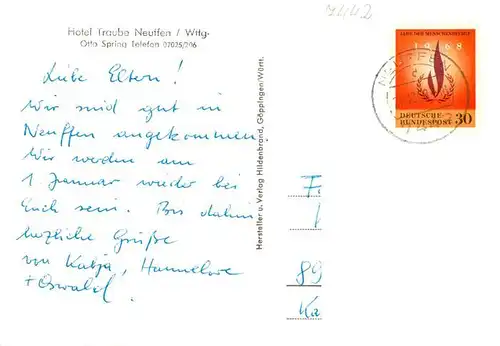 7442
Hotel Traube Neuffen / Wttg.
Otto Spring Telefon 07025/206
Liebe Eltern!
Wir sind gut in
Neuffen angekommen.
Wir werden am
1 Januar wieder bei
Euch sein. Bis dahin
herzliche Grüße
von Katja, Hannelore
+ Oswald.
Hersteller u. Verlag Hildenbrand, Göppingen/Württ.
JAHR DER MENSCHENRECHTE
1968
DEUTSCHE
BUNDESPOST 30
NEUFFEN
89
Ka